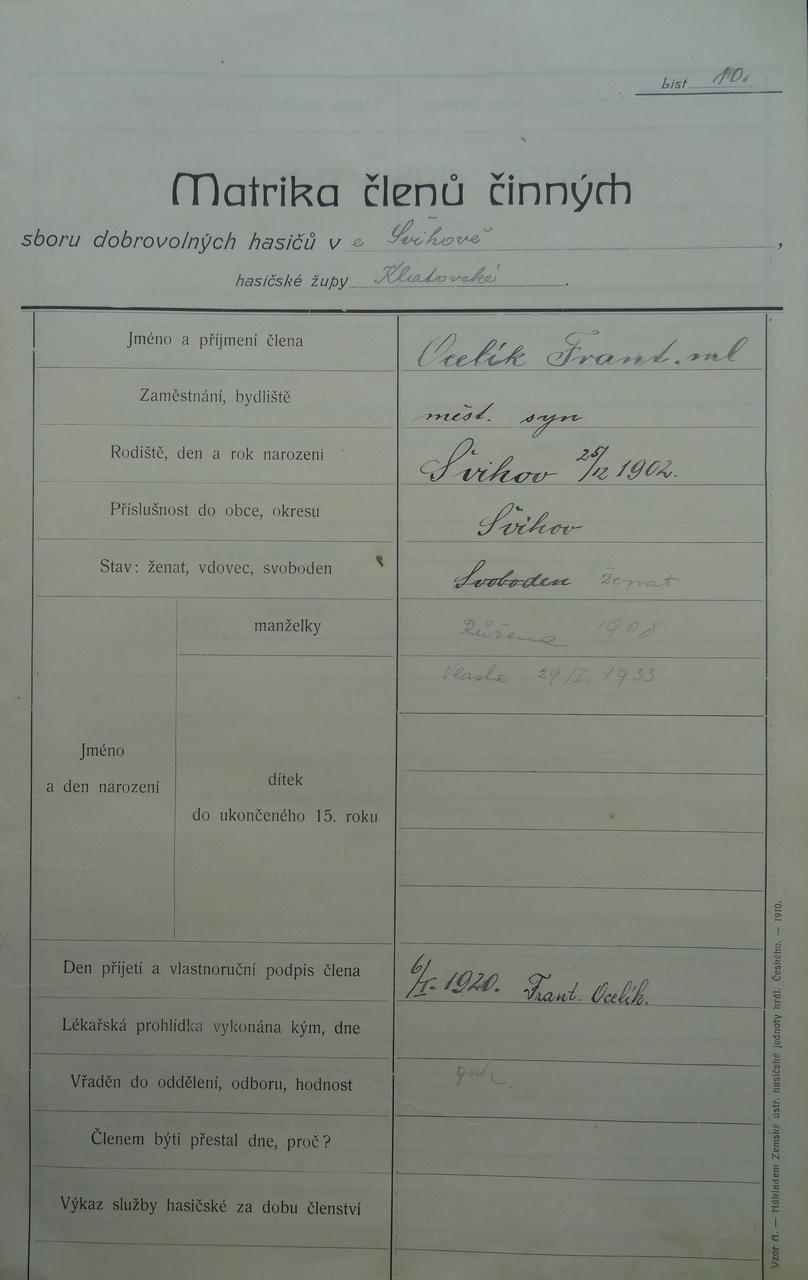 List 10.
Matrika členů činných
sboru dobrovolných hasičů v e Švihově,
hasičské župy Klatovské.
Jméno a příjmení člena Ocelík Frant. ml
Zaměstnání, bydliště měšt. syn
Rodiště, den a rok narození Švihov 25/12 1902.
Příslušnost do obce, okresu Švihov
Stav: ženat, vdovec, svoboden Svoboden ženat
manželky Růžena 1908
29/I. 1933
Jméno
a den narození
dítek
do ukončeného 15. roku
Den přijetí a vlastnoruční podpis člena 6/I. 1920. Frant. Ocelík.
Lékařská prohlídka vykonána kým, dne
Vřaděn do oddělení, odboru, hodnost
Členem býti přestal dne, proč?
Výkaz služby hasičské za dobu členství
Vzor A. — Nákladem Zemské ústř. hasičské jednoty král. Českého. — 1910.